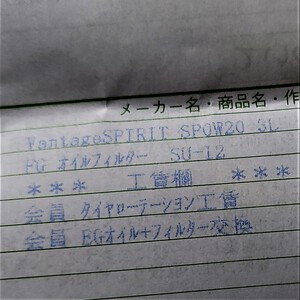 メーカー名・商品名・作
VantageSPIRIT SP0W20 3L
FG オイルフィルター SU-12
*** 工賃欄 ***
会員 タイヤローテーション工賃
会員 BGオイル+フィルター交換